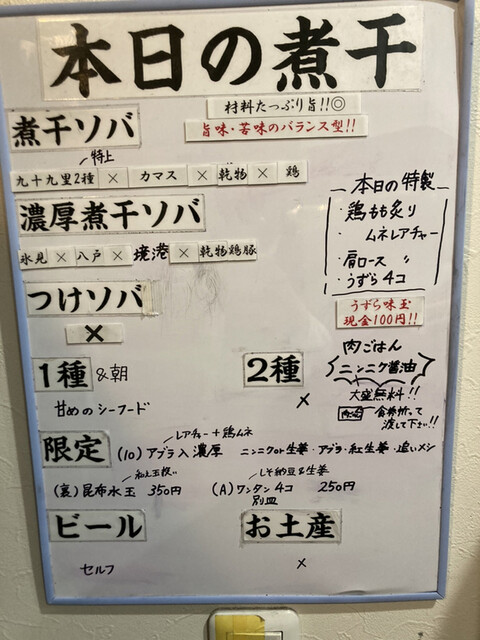 本日の煮干
材料たっぷり旨!!◎
旨味・苦味のバランス型!!
煮干ソバ
特上
九十九里2種 × カマス × 乾物 × 鶏
濃厚煮干ソバ
氷見 × 八戸 × 境港 × 乾物鶏豚
本日の特製
・鶏もも炙り
ムネレアチャー
・肩ロース 〃
・うずら4コ
うずら味玉
現金100円!!
つけソバ
×
1種 &朝
甘めのシーフード
2種
×
肉ごはん
ニンニク醤油
大盛無料!!
食券持って
渡して下さい!!
限定
レアチャー+鶏ムネ
(10) アブラ入濃厚 ニンニクor生姜・アブラ・紅生姜・追いメシ
和え玉
(裏)昆布水玉 350円
しそ納豆&生姜
(A)ワンタン4コ 250円
別皿
ビール
セルフ
お土産
×